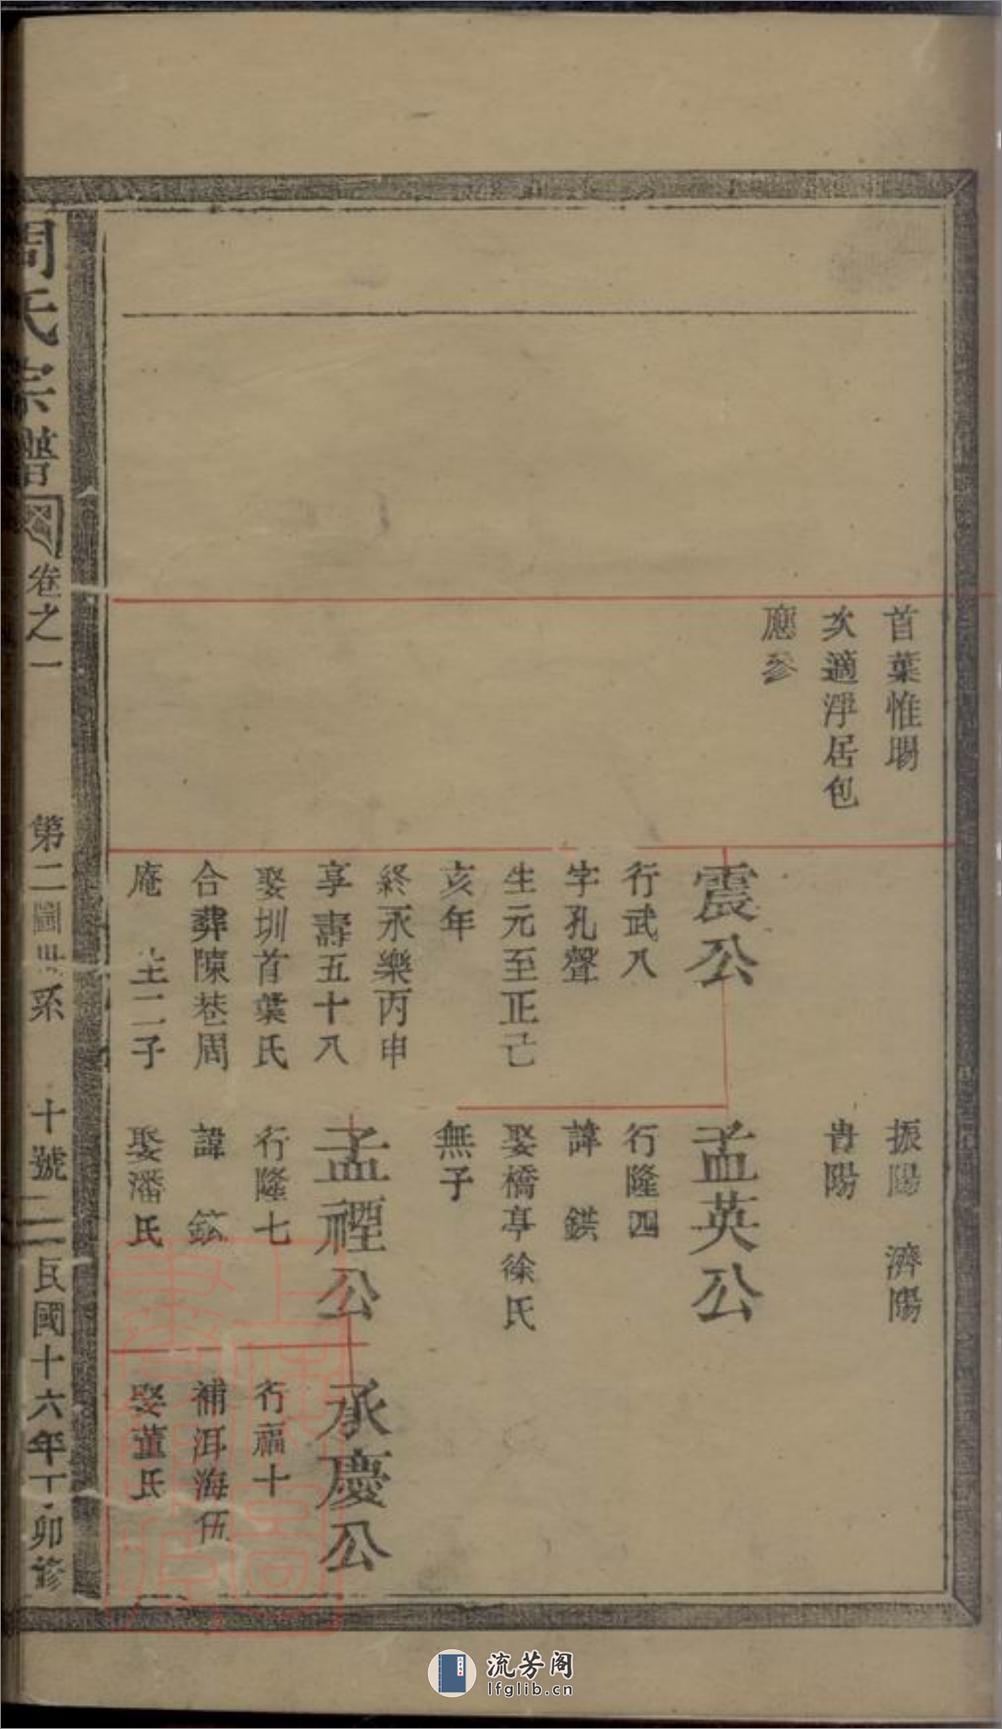 首葉惟暘
次適淨居包
應參
震公
行武八
字孔聲
生元至正己
亥年
終永樂丙申
享壽五十八
娶圳首葉氏
合葬陳巷周
庵 生二子
振陽 濟陽
冑陽
孟英公
行隆四
諱 鉷
娶橋亭徐氏
無子
孟禋公
行隆七
諱 鋐
娶潘氏
承慶公
行福十
補洱海伍
娶董氏
周氏宗譜
卷之一
第二圖世系
十號
民國十六年丁卯修
流芳阁
lfglib.cn